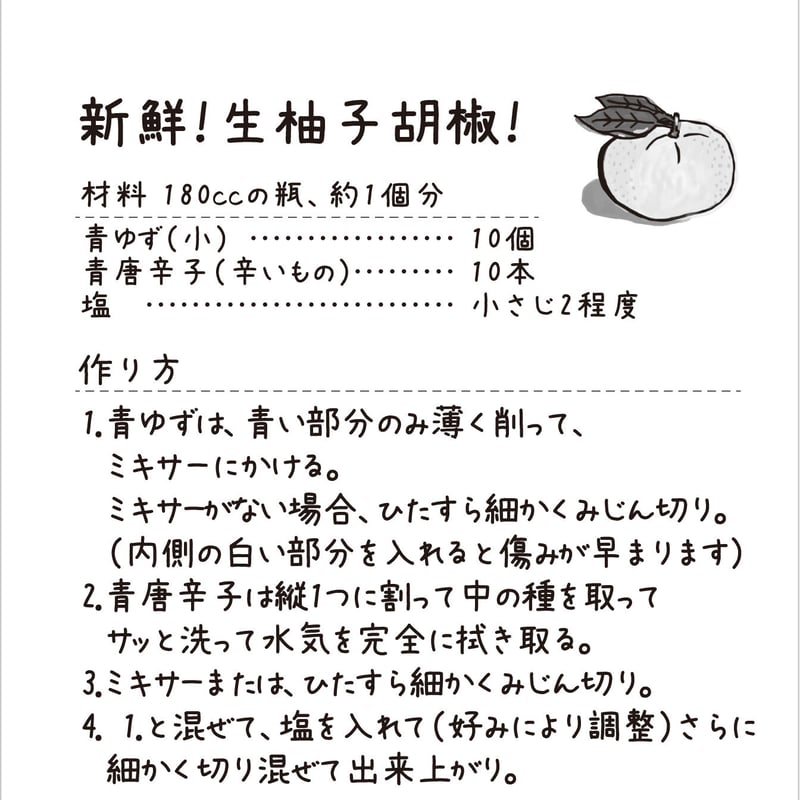 新鮮!生柚子胡椒!
材料 180ccの瓶、約1個分
青ゆず(小) ・・・・・・・・・・・・・・・・・・ 10個
青唐辛子(辛いもの)・・・・・・・・・ 10本
塩 ・・・・・・・・・・・・・・・・・・・・・・・・・・・ 小さじ2程度
作り方
1.青ゆずは、青い部分のみ薄く削って、
ミキサーにかける。
ミキサーがない場合、ひたすら細かくみじん切り。
(内側の白い部分を入れると傷みが早まります)
2.青唐辛子は縦1つに割って中の種を取って
サッと洗って水気を完全に拭き取る。
3.ミキサーまたは、ひたすら細かくみじん切り。
4. 1.と混ぜて、塩を入れて(好みにより調整)さらに
細かく切り混ぜて出来上がり。